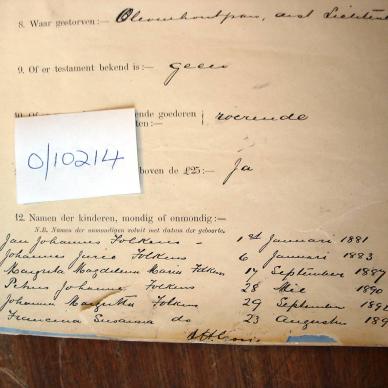 8. Waar gestorven :— Olievenhoutpan, dist Lichten
9. Of er testament bekend is :— geen
ende goederen
ten :— roerende
0/10214
boven de £25 :— Ja
12. Namen der kinderen, mondig of onmondig :—
N.B. Namen der onmondigen voluit met datum der geboorte.
Jan Johannes Folkens - 1st Januari 1881
Johannes Jurie Folkens 6 Januari 1883
Margreta Magdelena Maria Folkens 17 September 1887
Petrus Johannes Folkens 28 Mei 1890
Johanna Margretha Folkens 29 September 189
Francina Susanna do 23 Augustus 189